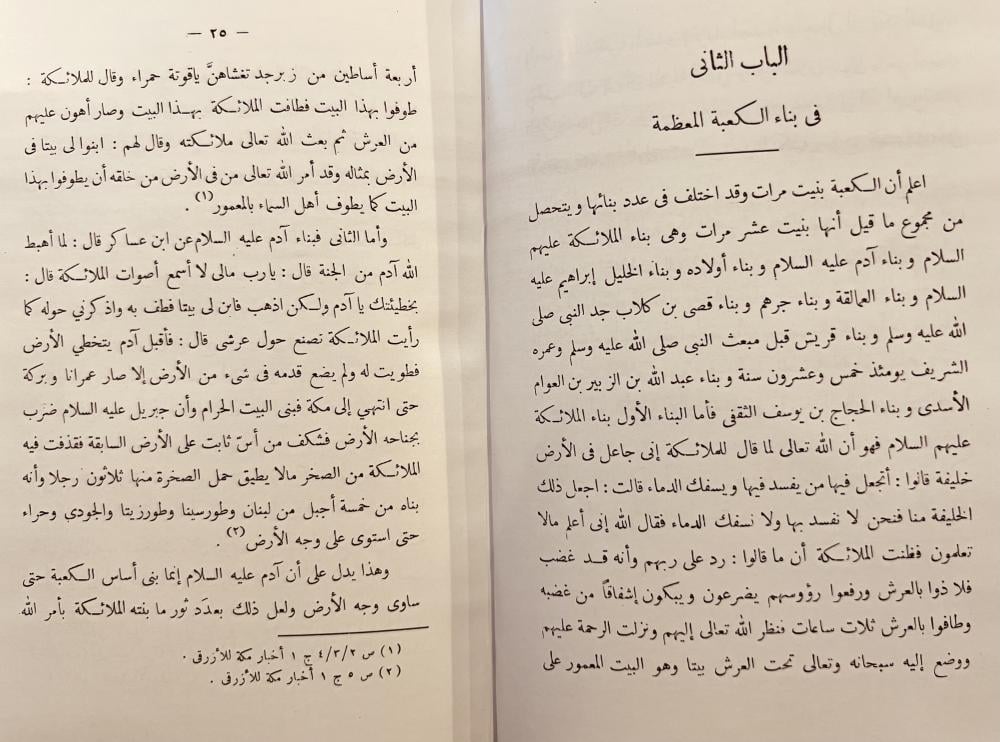 الباب الثانى
فى بناء الكعبة المعظمة
اعلم أن الكعبة بنيت مرات وقد اختلف فى عدد بنائها ويتحصل
من مجموع ما قيل أنها بنيت عشر مرات وهى بناء الملائكة عليهم
السلام وبناء آدم عليه السلام وبناء أولاده وبناء الخليل إبراهيم عليه
السلام وبناء العمالقة وبناء جرهم وبناء قصى بن كلاب جد النبى صلى
الله عليه وسلم وبناء قريش قبل مبعث النبى صلى الله عليه وسلم وعمره
الشريف يومئذ خمس وعشرون سنة وبناء عبد الله بن الزبير بن العوام
الأسدى وبناء الحجاج بن يوسف الثقفى فأما البناء الأول بناء الملائكة
عليهم السلام فهو أن الله تعالى لما قال للملائكة إنى جاعل فى الأرض
خليفة قالوا : أتجعل فيها من يفسد فيها ويسفك الدماء قالت : اجعل ذلك
الخليفة منا فنحن لا نفسد بها ولا نسفك الدماء فقال الله إنى أعلم مالا
تعلمون فظنت الملائكة أن ما قالوا : رد على ربهم وأنه قد غضب
فلاذوا بالعرش ورفعوا رؤوسهم يضرعون ويبكون إشفاقاً من غضبه
وطافوا بالعرش ثلاث ساعات فنظر الله تعالى إليهم ونزلت الرحمة عليهم
ووضع إليه سبحانه وتعالى تحت العرش بيتا وهو البيت المعمور على
— ٢٥ —
أربعة أساطين من زبرجد تغشاهنَّ ياقوتة حمراء وقال للملائكة :
طوفوا بهذا البيت فطافت الملائكة بهذا البيت وصار أهون عليهم
من العرش ثم بعث الله تعالى ملائكته وقال لهم : ابنوا لى بيتا فى
الأرض بمثاله وقد أمر الله تعالى من فى الأرض من خلقه أن يطوفوا بهذا
البيت كما يطوف أهل السماء بالمعمور(١) .
وأما الثانى فبناء آدم عليه السلام عن ابن عساكر قال : لما أهبط
الله آدم من الجنة قال : يارب مالى لا أسمع أصوات الملائكة قال :
بخطيئتك يا آدم ولكن اذهب فابن لى بيتا فطف به واذكرني حوله كما
رأيت الملائكة تصنع حول عرشى قال : فأقبل آدم يتخطي الأرض
فطويت له ولم يضع قدمه فى شىء من الأرض إلا صار عمرانا وبركة
حتى انتهي إلى مكة فبنى البيت الحرام وأن جبريل عليه السلام ضرب
بجناحه الأرض فشكف من أسّ ثابت على الأرض السابقة فقذفت فيه
الملائكة من الصخر مالا يطيق حمل الصخرة منها ثلاثون رجلا وأنه
بناه من خمسة أجبل من لبنان وطورسينا وطورزيتا والجودي وحراء
حتى استوى على وجه الأرض(٢) .
وهذا يدل على أن آدم عليه السلام إنما بنى أساس الكعبة حتى
ساوى وجه الأرض ولعل ذلك بعدَد ثور ما بنته الملائكة بأمر الله
(١) س ٤/٣/٢ ج ١ أخبار مكة للأزرقى .
(٢) س ٥ ج ١ أخبار مكة للأزرقى .